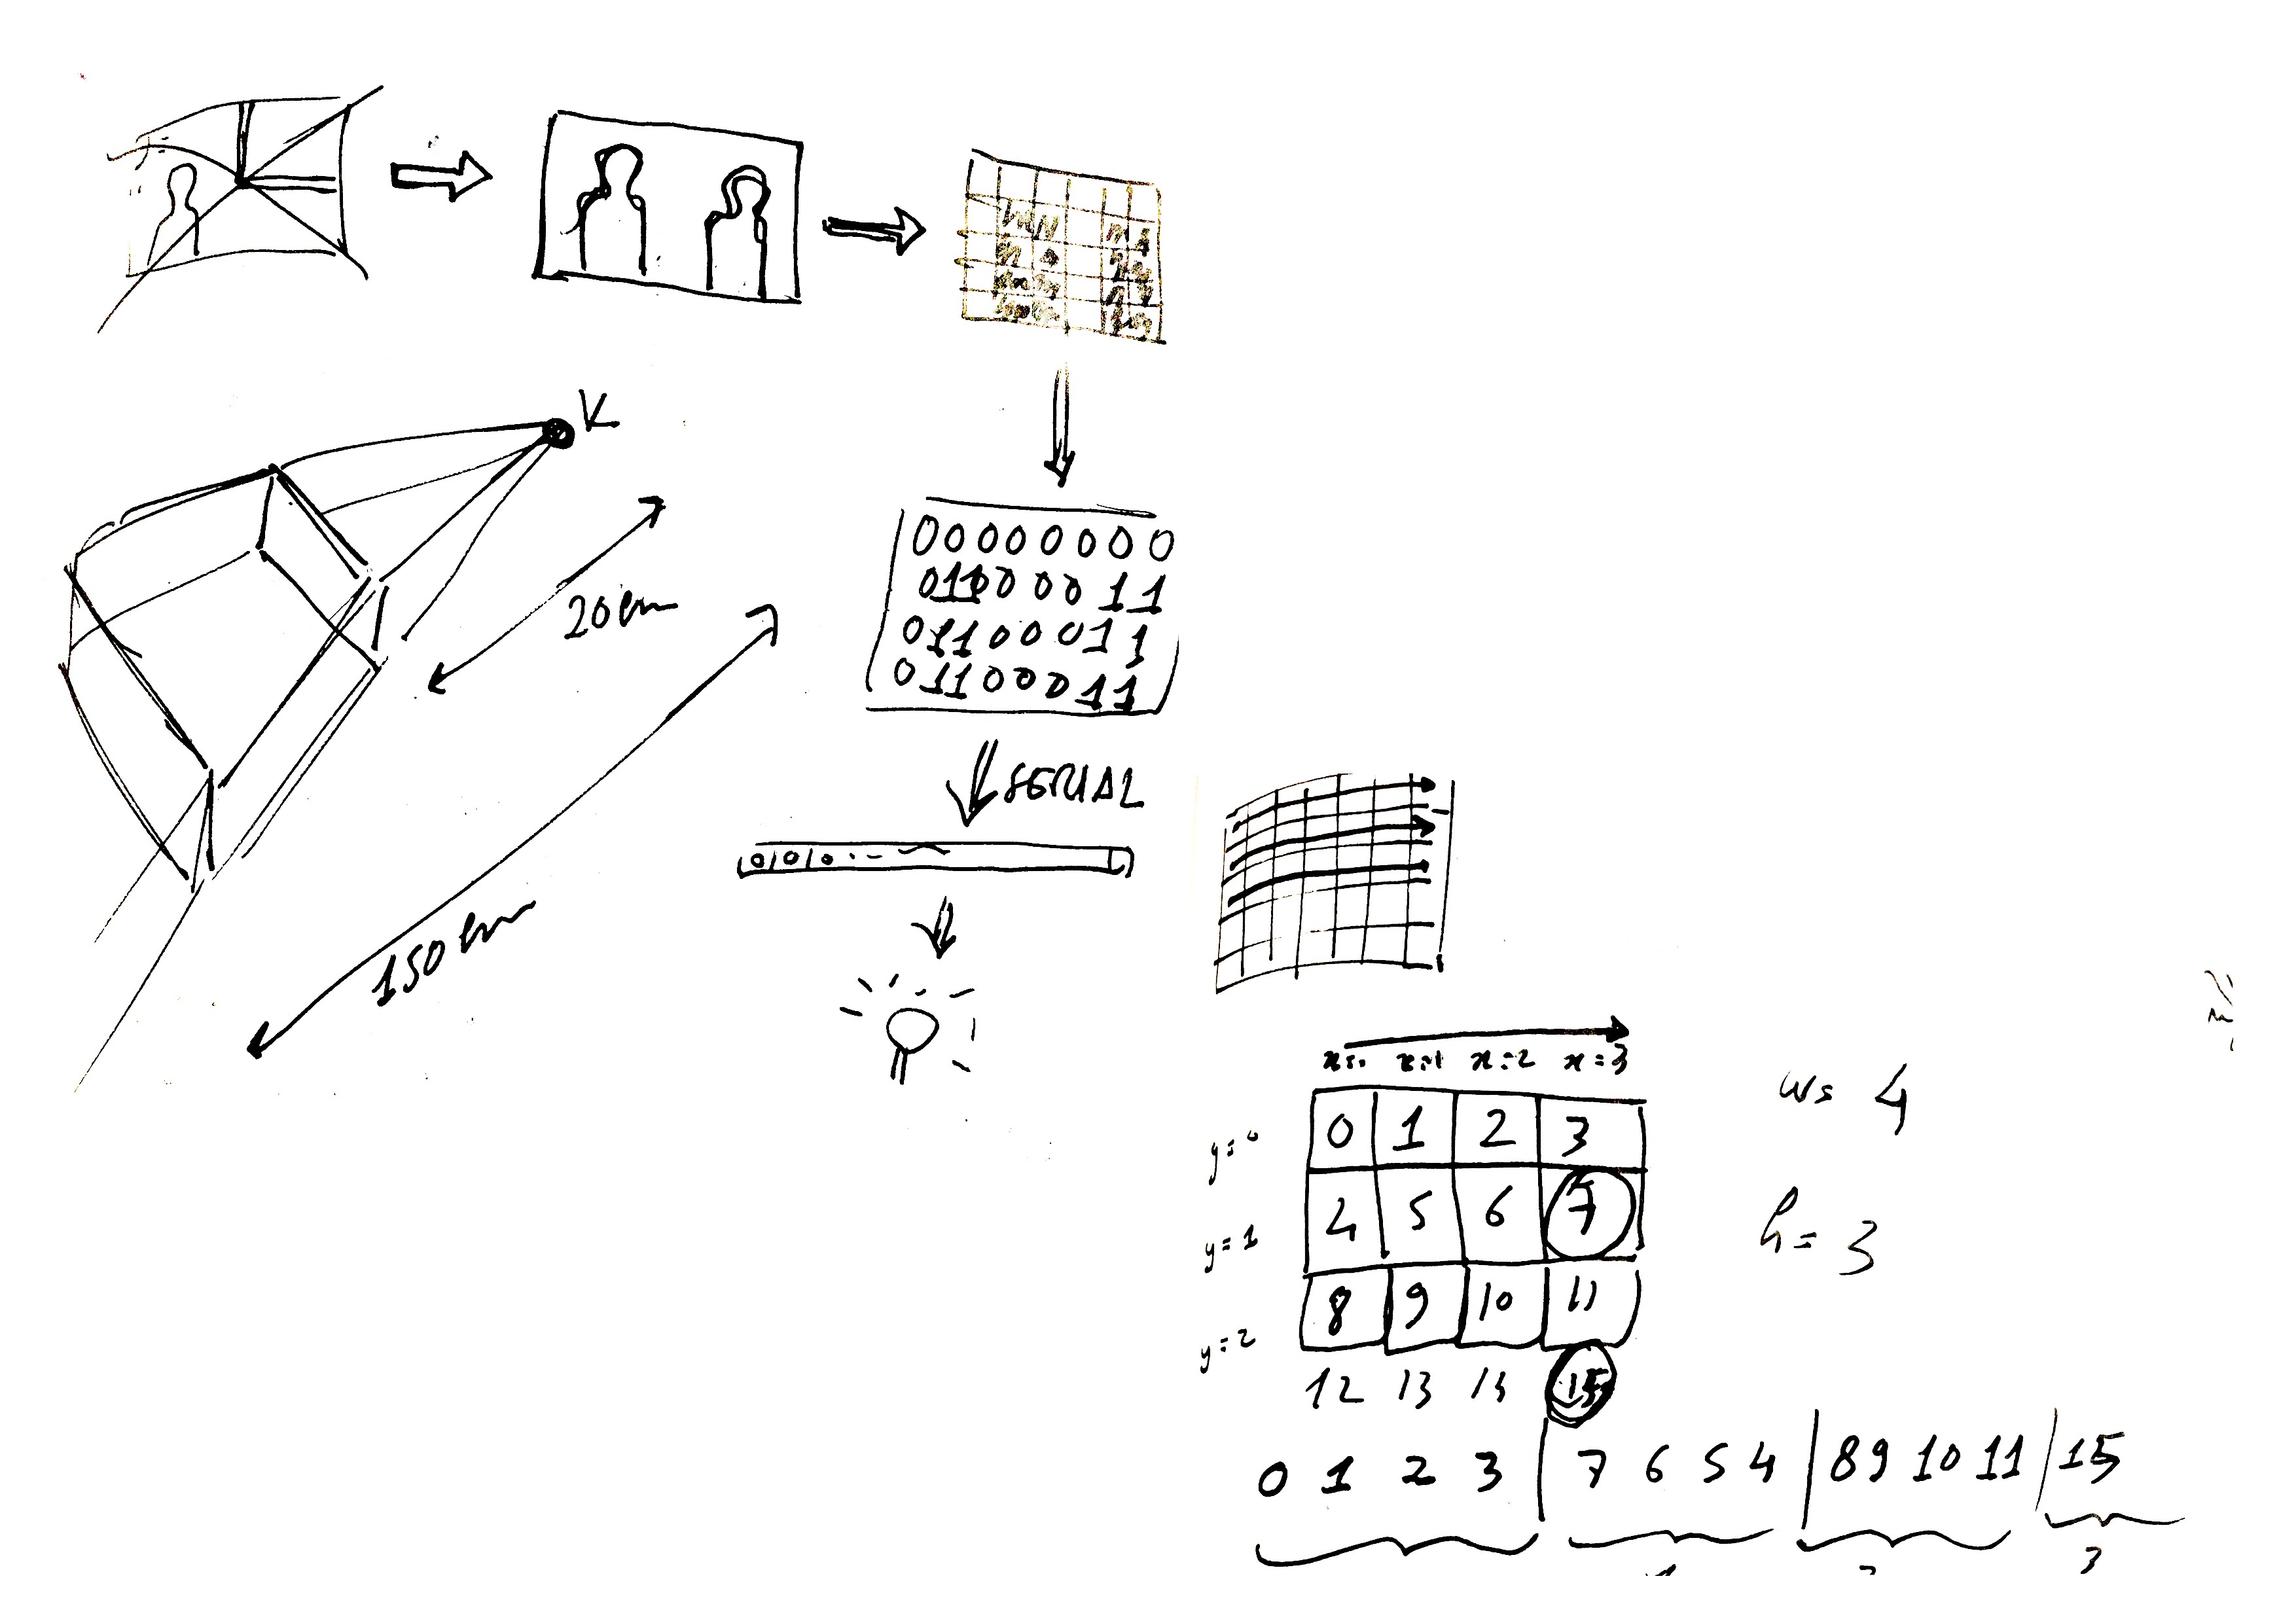 K
20 cm
150 cm
00000000
01100011
01100011
01100011
SERIAL
01010
x=1 x=2 x=3
y=0 0 1 2 3
y=1 4 5 6 7
y=2 8 9 10 11
12 13 14 15
w= 4
h= 3
0 1 2 3 | 7 6 5 4 | 8 9 10 11 | 15
1 2 3